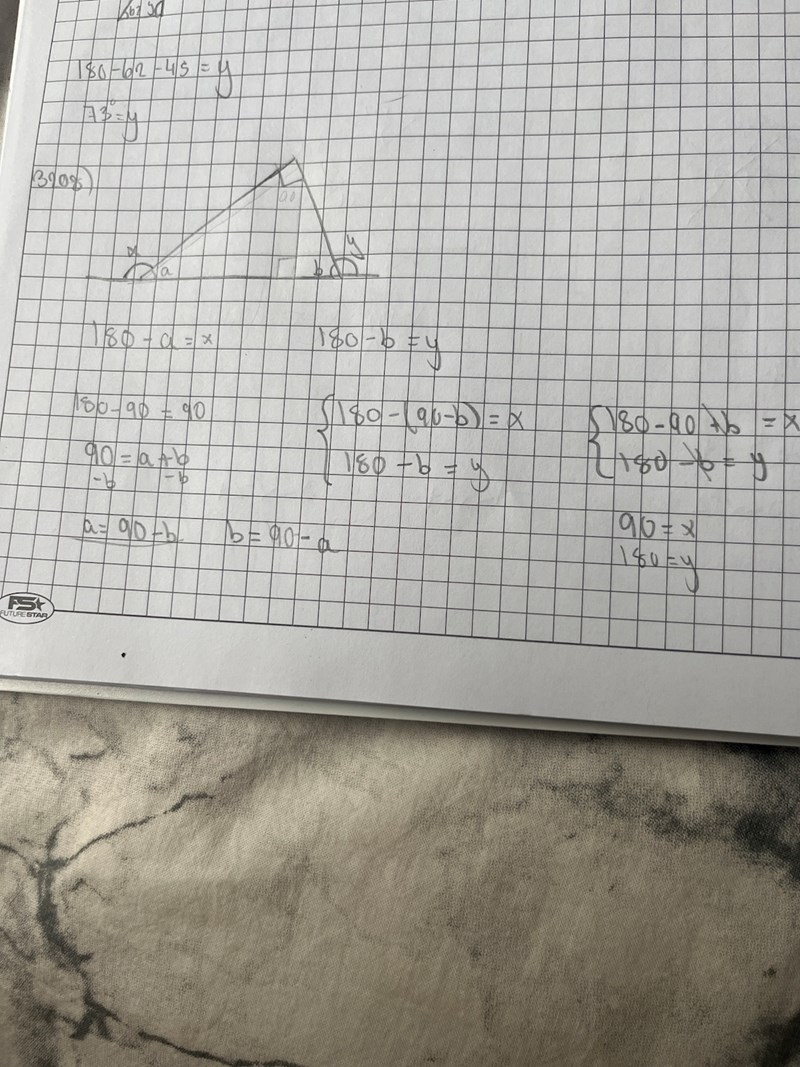 180-62-45=y
73°=y
3908)
x
y
a
90
b
180-a=x
180-b=y
180-90=90
90=a+b
-b -b
a=90-b
b=90-a
180-(90-b)=x
180-b=y
180-90+b=x
180-b=y
90=x
180=y
FS
FUTURE STAR